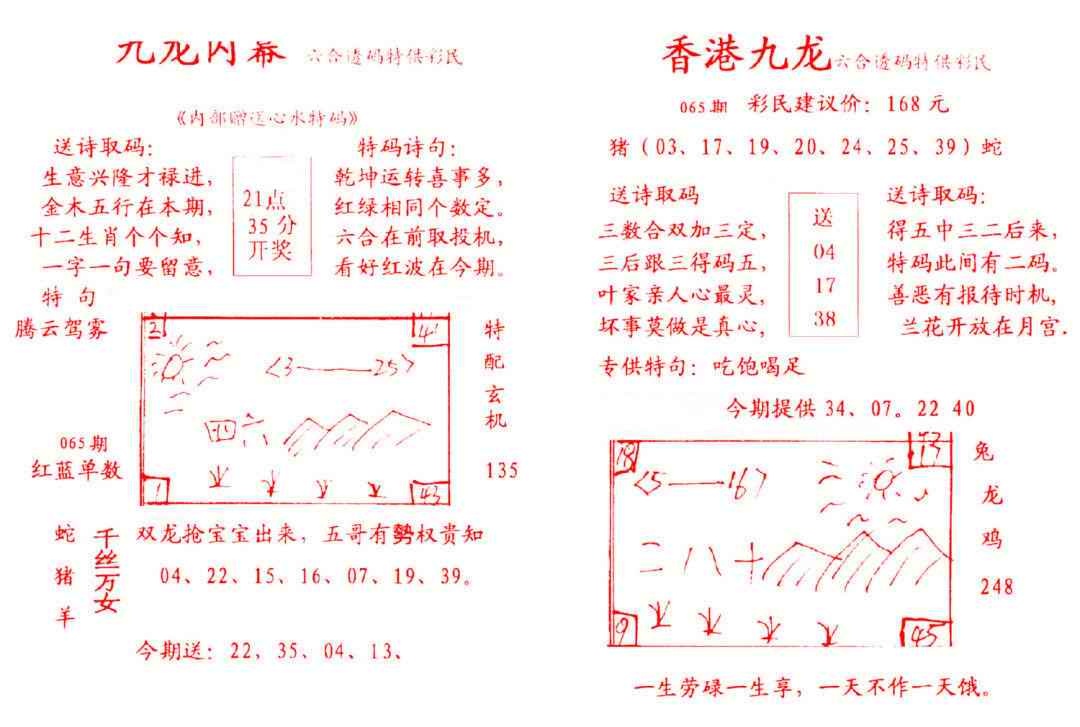 九龙内幕 六合透码特供彩民
《内部赠送心水特码》
送诗取码:
生意兴隆才禄进,
金木五行在本期,
十二生肖个个知,
一字一句要留意,
21点
35分
开奖
特码诗句:
乾坤运转喜事多,
红绿相同个数定。
六合在前取投机,
看好红波在今期。
特 句
腾云驾雾
065期
红蓝单数
2
41
〈3——25〉
四六
1
43
特
配
玄
机
135
蛇
猪
羊
千
丝
万
女
双龙抢宝宝出来, 五哥有势权贵知
04、22、15、16、07、19、39。
今期送: 22、35、04、13、
香港九龙 六合透码特供彩民
065期 彩民建议价: 168元
猪(03、17、19、20、24、25、39)蛇
送诗取码
三数合双加三定,
三后跟三得码五,
叶家亲人心最灵,
坏事莫做是真心,
送
04
17
38
送诗取码:
得五中三二后来,
特码此间有二码。
善恶有报待时机,
兰花开放在月宫.
专供特句: 吃饱喝足
今期提供 34、07。22 40
18
13
〈5——16〉
二八十
9
45
兔
龙
鸡
248
一生劳碌一生享, 一天不作一天饿。